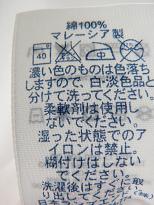 綿100%
マレーシア製
40
濃い色のものは色落ち
しますので、白・淡色品と
分けて洗ってください。
柔軟剤は使用し
ないでください。
湿った状態でのア
イロンは禁止。
糊付けはしない
でください。
洗濯後はすぐに取